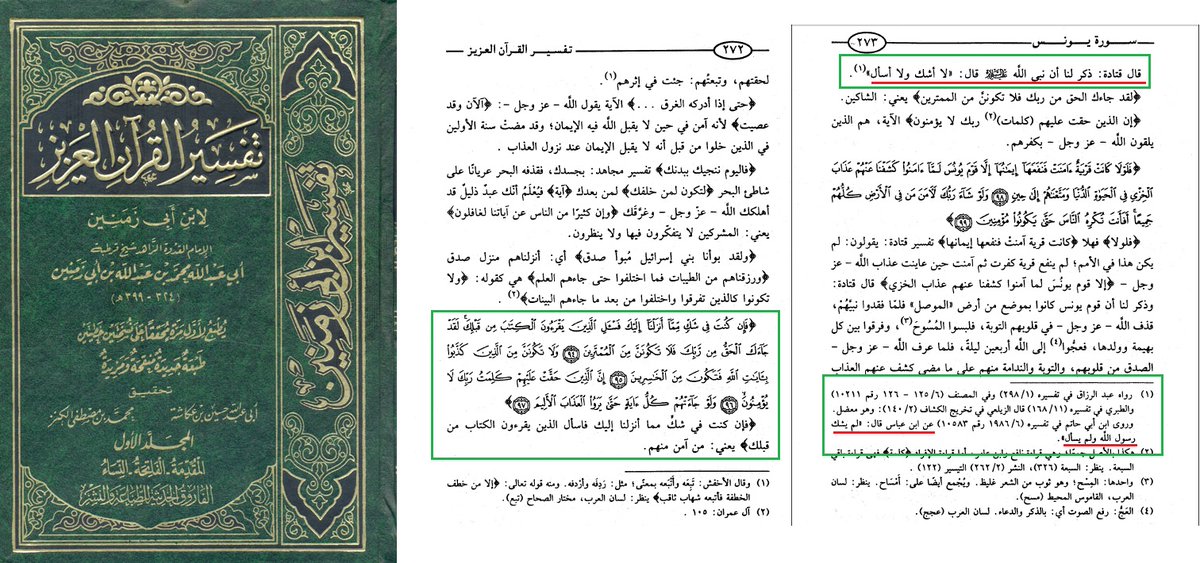 تفسير القرآن العزيز
لابن أبي زمنين
الإمام القدوة الزاهد شيخ قرطبة
أبي عبد الله محمد بن عبد الله بن أبي زمنين
(٣٢٤ - ٣٩٩ هـ)
يطبع لأول مرة محققاً على نسختين خطيتين
طبعة جديدة منقحة ومزيدة
تحقيق
أبي عبد الله حسين بن عكاشة
محمد بن مصطفى الكنز
المجلد الأول
المقدمة، الفاتحة، النساء
الفاروق الحديثة للطباعة والنشر
تفسير ابن أبي زمنين
٢٧٢
تفسير القرآن العزيز
لحقتهم، وتبعتُهم: جئت في إثرهم(١).
﴿حتى إذا أدركه الغرق ...﴾ الآية يقول اللَّه - عز وجل -: ﴿آلآن وقد
عصيت﴾ لأنه آمن في حين لا يقبل اللَّه فيه الإيمان؛ وقد مضتْ سنة الأولين
في الذين خلوا من قبل أنه لا يقبل الإيمان عند نزول العذاب.
﴿فاليوم ننجيك ببدنك﴾ تفسير مجاهد: بجسدك، فقذفه البحر عريانًا على
شاطئ البحر ﴿لتكون لمن خلفك﴾ لمن بعدك ﴿آية﴾ فيُعْلَمُ أنَّك عبدٌ ذليلٌ قد
أهلكك اللَّه - عزَّ وجل - وغرَّقك ﴿وإن كثيرًا من الناس عن آياتنا لغافلون﴾
يعني: المشركين لا يتفكّرون فيها ولا ينظرون.
﴿ولقد بوأنا بني إسرائيل مُبوأ صدق﴾ أي: أنزلناهم منزل صدق
﴿ورزقناهم من الطيبات فما اختلفوا حتى جاءهم العلم﴾ هي كقوله: ﴿ولا
تكونوا كالذين تفرقوا واختلفوا من بعد ما جاءهم البينات﴾(٢).
﴿فَإِن كُنتَ فِي شَكٍّ مِّمَّا أَنزَلْنَا إِلَيْكَ فَسْـَٔلِ الَّذِينَ يَقْرَءُونَ الْكِتَٰبَ مِن قَبْلِكَ لَقَدْ
جَآءَكَ الْحَقُّ مِن رَّبِّكَ فَلَا تَكُونَنَّ مِنَ الْمُمْتَرِينَ ٩٤ وَلَا تَكُونَنَّ مِنَ الَّذِينَ كَذَّبُوا
بِـَٔايَٰتِ اللَّهِ فَتَكُونَ مِنَ الْخَٰسِرِينَ ٩٥ إِنَّ الَّذِينَ حَقَّتْ عَلَيْهِمْ كَلِمَتُ رَبِّكَ لَا
يُؤْمِنُونَ ٩٦ وَلَوْ جَآءَتْهُمْ كُلُّ ءَايَةٍ حَتَّىٰ يَرَوُا الْعَذَابَ الْأَلِيمَ ٩٧﴾
﴿فإن كنت في شكٍّ مما أنزلنا إليك فاسأل الذين يقرءون الكتاب من
قبلك﴾ يعني: من آمن منهم.
(١) وقال الأخفش: تَبِعَه وأَتْبَعَه بمعنًى؛ مثل: رَدِفَه وأردفه. ومنه قوله تعالى: ﴿إلا من خطف
الخطفة فأتبعه شهاب ثاقب﴾ ينظر: لسان العرب، مختار الصحاح (تبع).
(٢) آل عمران: ١٠٥.
سورة يونس
٢٧٣
قال قتادة: ذكر لنا أن نبي اللَّه ﷺ قال: «لا أشك ولا أسأل»(١).
﴿لقد جاءك الحق من ربك فلا تكوننَّ من الممترين﴾ يعني: الشاكين.
﴿إن الذين حقت عليهم (كلمات)(٢) ربك لا يؤمنون﴾ الآية، هم الذين
يلقون اللَّه - عز وجل - بكفرهم.
﴿فَلَوْلَا كَانَتْ قَرْيَةٌ ءَامَنَتْ فَنَفَعَهَا إِيمَٰنُهَا إِلَّا قَوْمَ يُونُسَ لَمَّا ءَامَنُوا كَشَفْنَا عَنْهُمْ عَذَابَ
الْخِزْيِ فِي الْحَيَوٰةِ الدُّنْيَا وَمَتَّعْنَٰهُمْ إِلَىٰ حِينٍ ٩٨ وَلَوْ شَآءَ رَبُّكَ لَـَٔامَنَ مَن فِي الْأَرْضِ كُلُّهُمْ
جَمِيعًا أَفَأَنتَ تُكْرِهُ النَّاسَ حَتَّىٰ يَكُونُوا مُؤْمِنِينَ ٩٩﴾
﴿فلولا﴾ فهلا ﴿كانت قرية آمنتْ فنفعها إيمانها﴾ تفسير قتادة: يقولون: لم
يكن هذا في الأمم؛ لم ينفع قرية كفرت ثم آمنت حين عاينت عذاب اللَّه - عز
وجل - ﴿إلا قوم يونُسَ لما آمنوا كشفنا عنهم عذاب الخزي﴾ قال قتادة:
وذكر لنا أن قوم يونس كانوا بموضع من أرض «الموصل» فلمَّا فقدوا نبيَّهُمْ،
قذف اللَّه - عز وجل - في قلوبهم التوبة، فلبسوا المُسُوحَ(٣)، وفرقوا بين كل
بهيمة وولدها، فعجُّوا(٤) إلى اللَّه أربعين ليلةً، فلما عرف اللَّه - عز وجل -
الصدق من قلوبهم، والتوبة والندامة منهم على ما مضى كشف عنهم العذاب
(١) رواه عبد الرزاق في تفسيره (٢٩٨/١) وفي المصنف (١٢٥/٦ - ١٢٦ رقم ١٠٢١١)
والطبري في تفسيره (١٦٨/١١) قال الزيلعي في تخريج الكشاف (١٤٠/٢): وهو معضل.
وروى ابن أبي حاتم في تفسيره (١٩٨٦/٦ رقم ١٠٥٨٣) عن ابن عباس قال: «لم يشك
رسول اللَّه ولم يسأل».
السبعة. ينظر: السبعة (٣٢٦)، النشر (٢٦٢/٢) التيسير (١٢٢).
(٣) واحدها: المِسْح؛ وهو ثوب من الشعر غليظ. ويُجمع أيضًا على: أَمْسَاح. ينظر: لسان
العرب، القاموس المحيط (مسح).
(٤) العَجُّ: رفع الصوت أي: بالذكر والدعاء. لسان العرب (عجج).